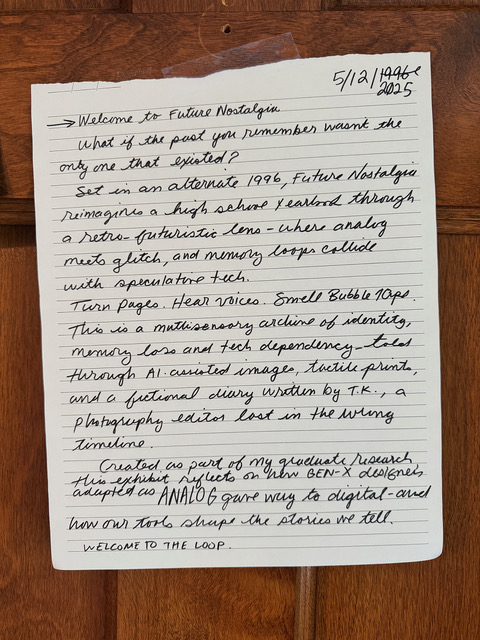 5/12/1996
2025
→ Welcome to Future Nostalgia
What if the past you remember wasnt the
only one that existed?
Set in an alternate 1996, Future Nostalgia
reimagines a high school yearbook through
a retro-futuristic lens - where analog
meets glitch, and memory loops collide
with speculative tech.
Turn pages. Hear voices. Smell Bubble Tape.
This is a multisensory archive of identity,
memory loss and tech dependency - told
through AI-assisted images, tactile prints,
and a fictional diary written by T.K., a
photography editor lost in the wrong
timeline.
Created as part of my graduate research
this exhibit reflects on how GEN-X designers
adapted as ANALOG gave way to digital - and
how our tools shape the stories we tell.
WELCOME TO THE LOOP.